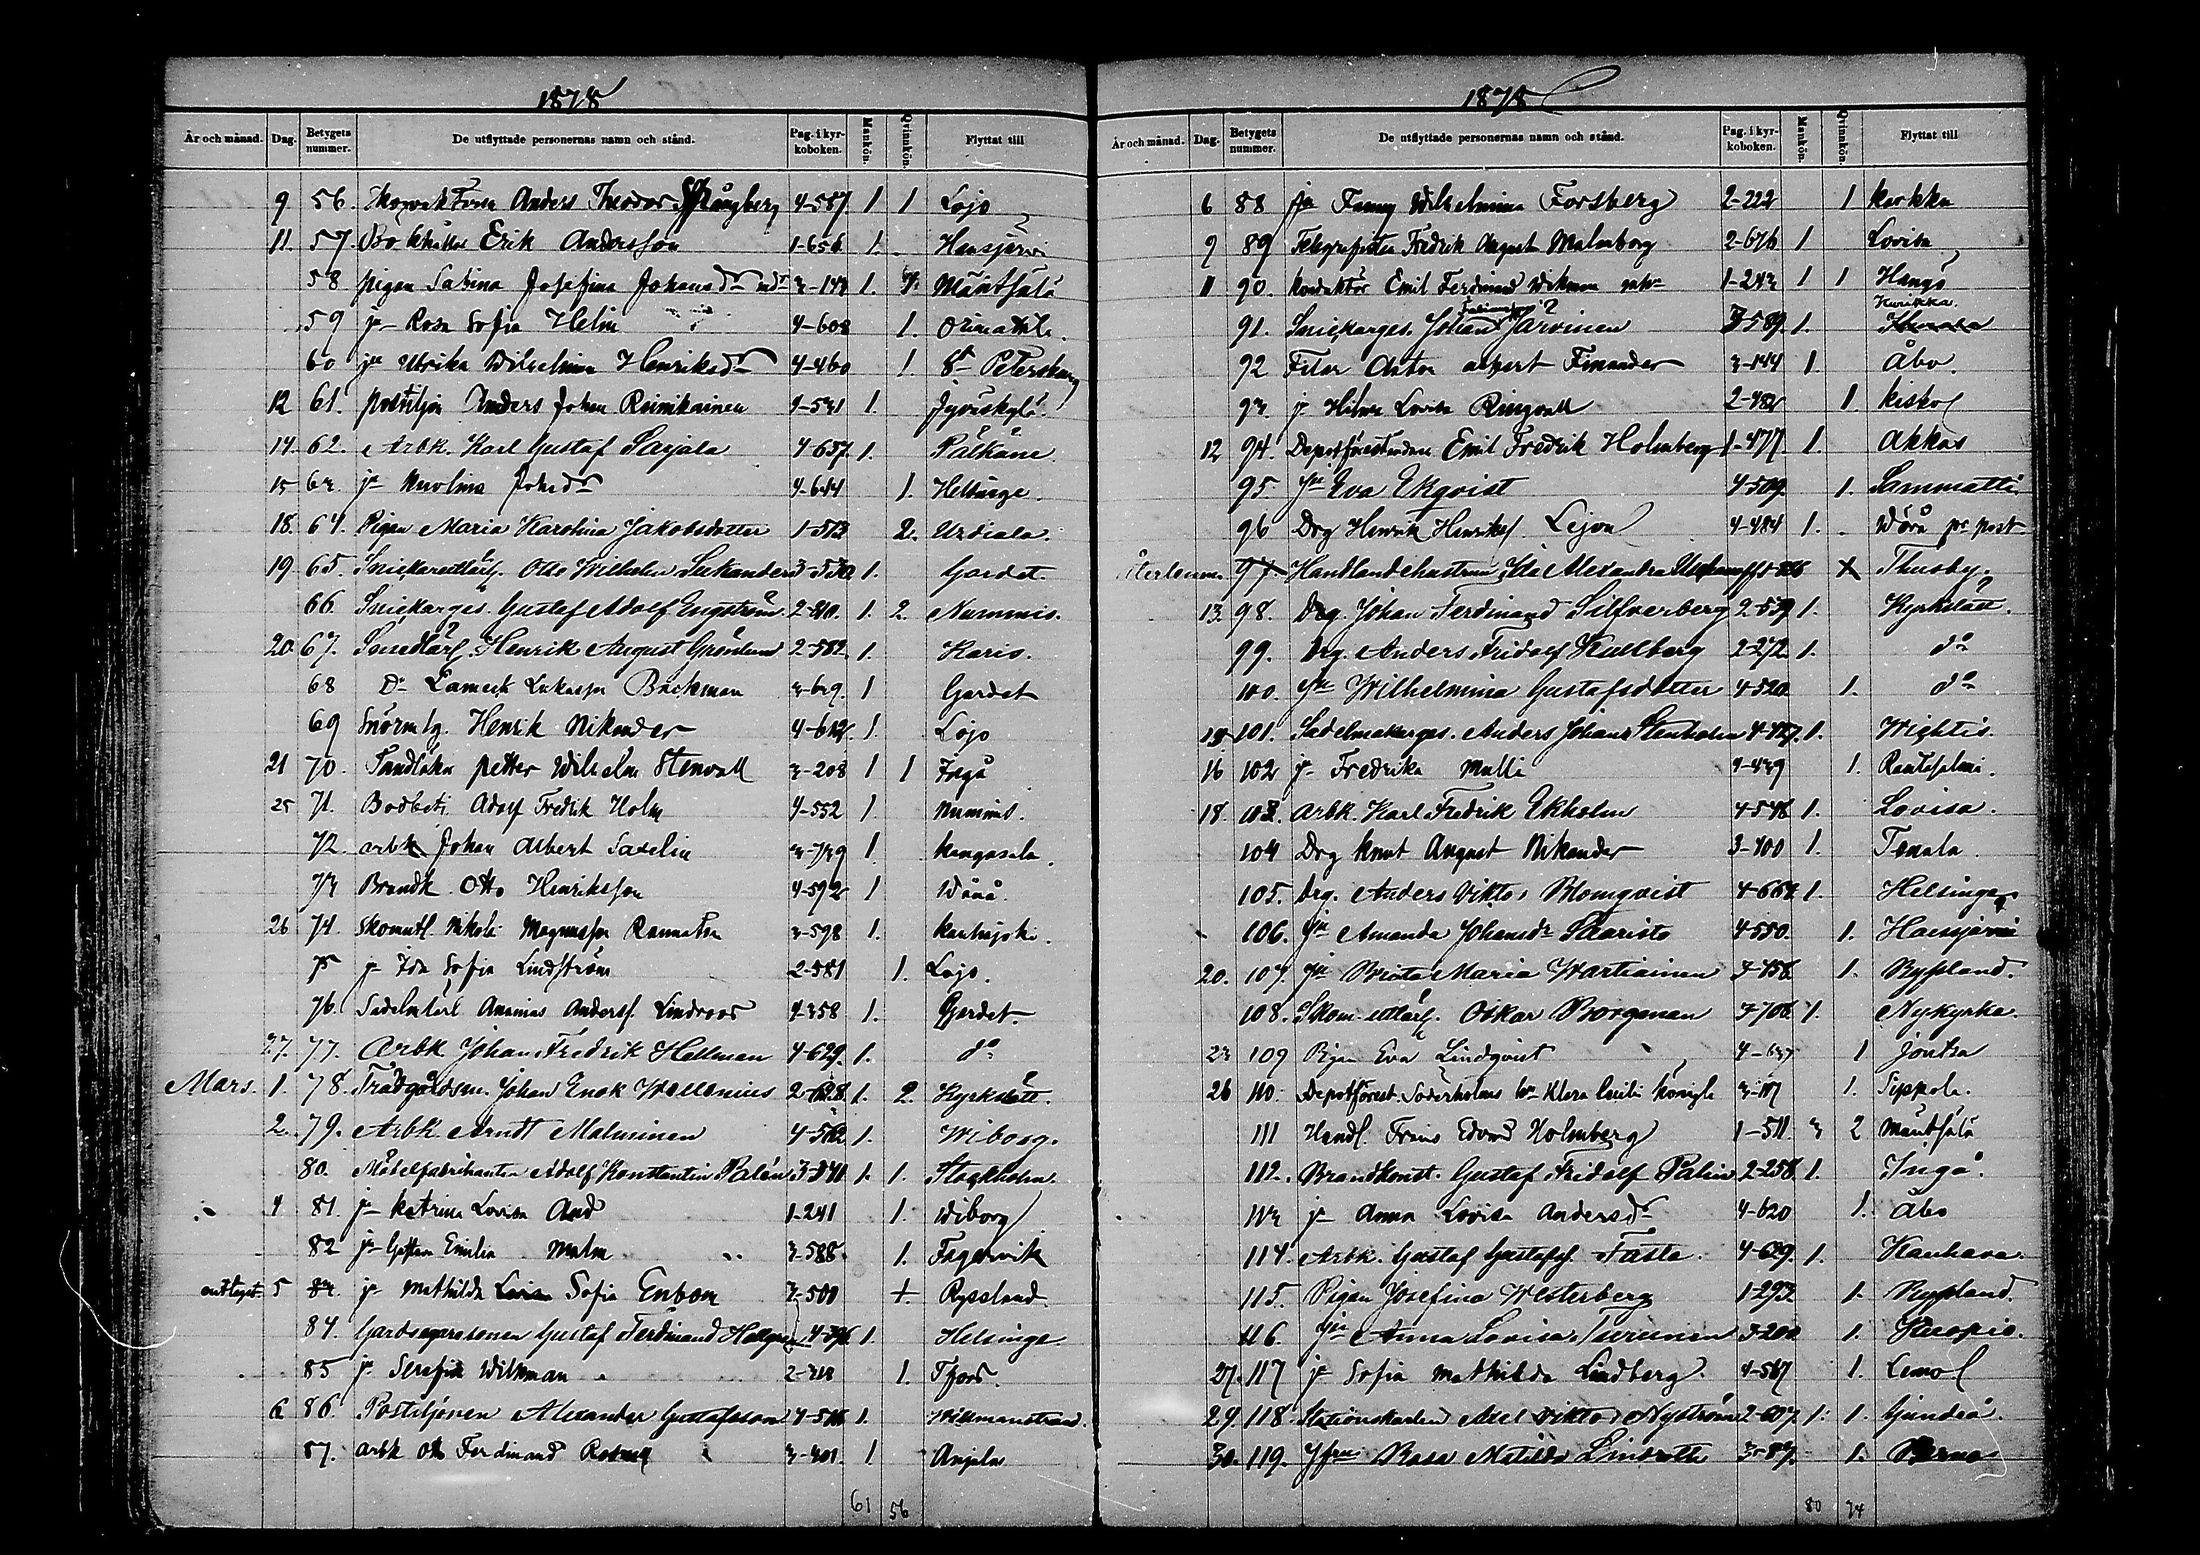 1878
År och månad. Dag. Betygets nummer. De utflyttade personernas namn och stånd. Pag. i kyrkoboken. Mankön. Qvinnkön. Flyttat till
9 56. Anders Theodor Spångberg 4-587 1 1 Lojo
11. 57. Bokhållar Erik Andersson 1-656 1. Hausjärvi
58 pigan Sabina Josefina Johansdr 3-143 1. Mäntsälä
59 jr Rosa Sofia Helin 4-608 1. Orimattila
60 jr Ulrika Wilhelmina Henriksdr 4-460 1. St Petersburg
12 61. postiljon Anders Johan Rinikainen 4-531 1. Jyväskylä
14. 62. Arbk. Karl Gustaf Sarjala 4-657. 1. Pälkäne
15 63. jr Karolina Johsdr 4-644 1. Helsinge.
18. 64. Pigan Maria Karolina Jakobsdotter 1-513 2. Urdiala.
19. 65. Snickarelärl. Otto Wilhelm Lukander 3-530 1. Gardet.
66. Snickarges. Gustaf Adolf Engström 2-810. 1. 2. Nummis.
20. 67. Smedlärl. Henrik August Grönlund 2-582. 1. Karis.
68 Do Lamech Lukasson Backman 3-639. 1 Gardet
69 Henrik Nikander 4-612 1. Lojo
21 70. Petter Wilhelm Stenvall 3-208 1 1 Ingå
25 71. Bodbetj. Adolf Fredrik Holm 4-552 1. Nummis.
72. arbk Johan Albert Savelin 3-739 1. Kangasala.
73 Brandk. Otto Henriksson 4-592 1 Wånå.
26 74. Skomtl. Nikolai Magnusson 3-598 1. Kauhajoki.
75 jr Ida Sofia Lindström 2-581 1. Lojo.
76. Sadelmlärl Ananias Anderss. Lindroos 4-358 1. Gardet.
27. 77. Arbk Johan Fredrik Hellman 4-629. 1. do
Mars. 1. 78. Trädgårdsm. Johan Enok Wellenius 2-628. 1. 2. Kyrkslätt.
2. 79. Arbk Arndt Malminen 4-512 1. Wiborg.
80. Möbelfabrikanten Adolf Konstantin Palén 3-341 1. 1. Stockholm.
4 81. jr Katrina Lovisa And 1-241 1. Wiborg
82 jr Gustava Emilia Malm 3-588. 1. Fagervik
5 83. jr Mathilda Lovisa Sofia Enbom 3-500 1. Ryssland.
84. Gardsgarrosonen Gustaf Ferdinand Hellgren 4-396 1. Helsinge.
85 jr Serafia Wikman 2-318 1. Tfors.
6 86. Postiljonen Alexander Gustafsson 4-516 1. Willmanstrand.
87. arbk Otto Ferdinand 3-301. 1 Anjala
61 56
1878
År och månad. Dag. Betygets nummer. De utflyttade personernas namn och stånd. Pag. i kyrkoboken. Mankön. Qvinnkön. Flyttat till
6 88 jr Fanny Wilhelmina Forsberg 2-222 1 Karkku
9 89 Telegrafisten Fredrik August Malmborg 2-676 1 Lovisa
11 90. Konduktör Emil Ferdinand Wikman 1-243 1 1 Hangö
Kurikka
91. Snickarges. Johan Järvinen 3-589. 1.
92 Filar Anton Albert Finander 3-144 1. Åbo.
93 jr Hilma Lovisa Ringvall 2-482 1. Kisko
12 94. Depotföreståndare Emil Fredrik Holmberg 1-477. 1. Akkas
95 Jfr Eva Ekqvist 4-509. 1. Sammatti
96 Drg Henrik Henriks. Lejon 4-484 1. Wörå pr post
Återlemn. 97. Handlandehustrun Ida Alexandra Thusby.
13. 98. Drg. Johan Ferdinand Silfverberg 2-539 1. Kyrkslätt.
99. Drg. Anders Fridolf Kullberg 2-272. 1. do
100. Jfr Wilhelmina Gustafsdotter 4-520. 1. do
15 101. Sadelmakarges. Anders Johan Stenholm 4-427. 1. Wichtis.
16 102 jr Fredrika Malli 4-439 1. Rautalampi.
18. 103. Arbk. Karl Fredrik Ekholm 4-546 1. Lovisa.
104 Drg Knut August Nikander 3-400 1. Tenala
105. Drg. Anders Viktor Blomqvist 4-664 1. Helsinge
106. Jfr Amanda Johansdr Saaristo 4-550. 1. Hausjärvi
20. 107. Jfr Brita Maria Wartiainen 3-458. 1. Ryssland.
108. Skom. lärl. Oskar Borgman 3-706 1. Nykyrka.
23 109 Pigan Eva Lindqvist 4-637 1 Jontsa
26 110. Depotförest. Söderholms Klara Cecilia Königh 3-117 1. Sippola.
111 Handl. Frans Edvard Holmberg 1-511. 3 2 Mäntsälä
112. Brandkonst. Gustaf Fridolf Palin 2-258. 1. Ingå.
113 jr Anna Lovisa Andersdr 4-620 1. Åbo
114. Arbk. Gustaf Gustafs. Fasta. 4-629. 1. Kauhava.
115. Pigan Josefina Westerberg 1-293. 1. Ryssland.
116. Jfr Anna Lovisa Turunen 3-200 1. Kuopio.
27. 117 jr Sofia Mathilda Lindberg. 4-567 1. Lemo
29. 118. Stationskarlen Axel Viktor Nyström 2-607. 1. 1. Sjundeå.
30. 119. Jfrn Rosa Matilda Lindroth 3-87. 1. Pernå
80 74